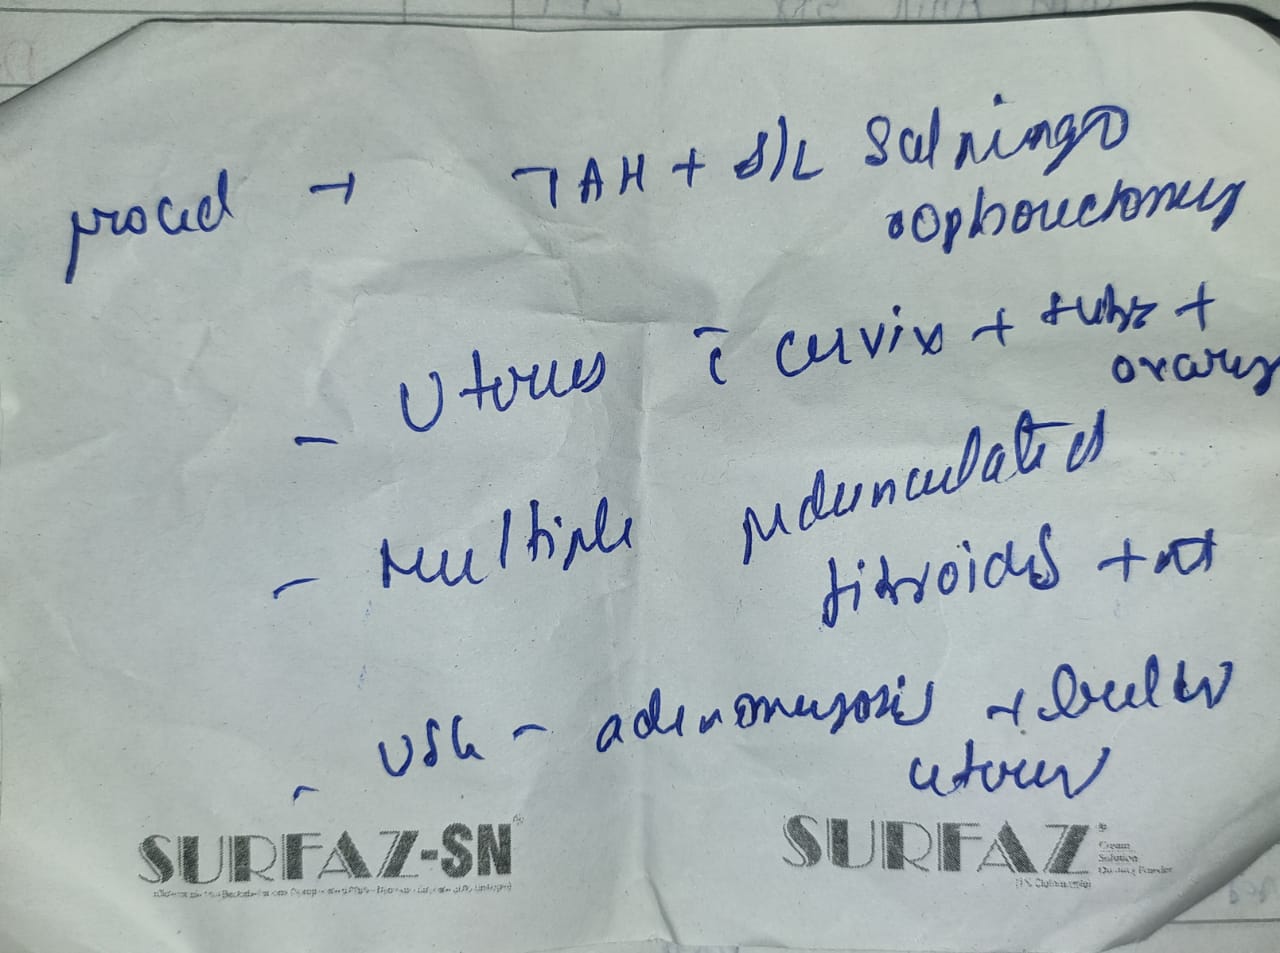 proced → TAH + S/L Salpingo
oophorectomy
- Uterus c̄ cervix + tube +
ovary
- Multiple pedunculated
fibroids +nt
- USG - adenomyosis + bulky
uterus
SURFAZ-SN
SURFAZ®
Cream
Solution
Dusting Powder